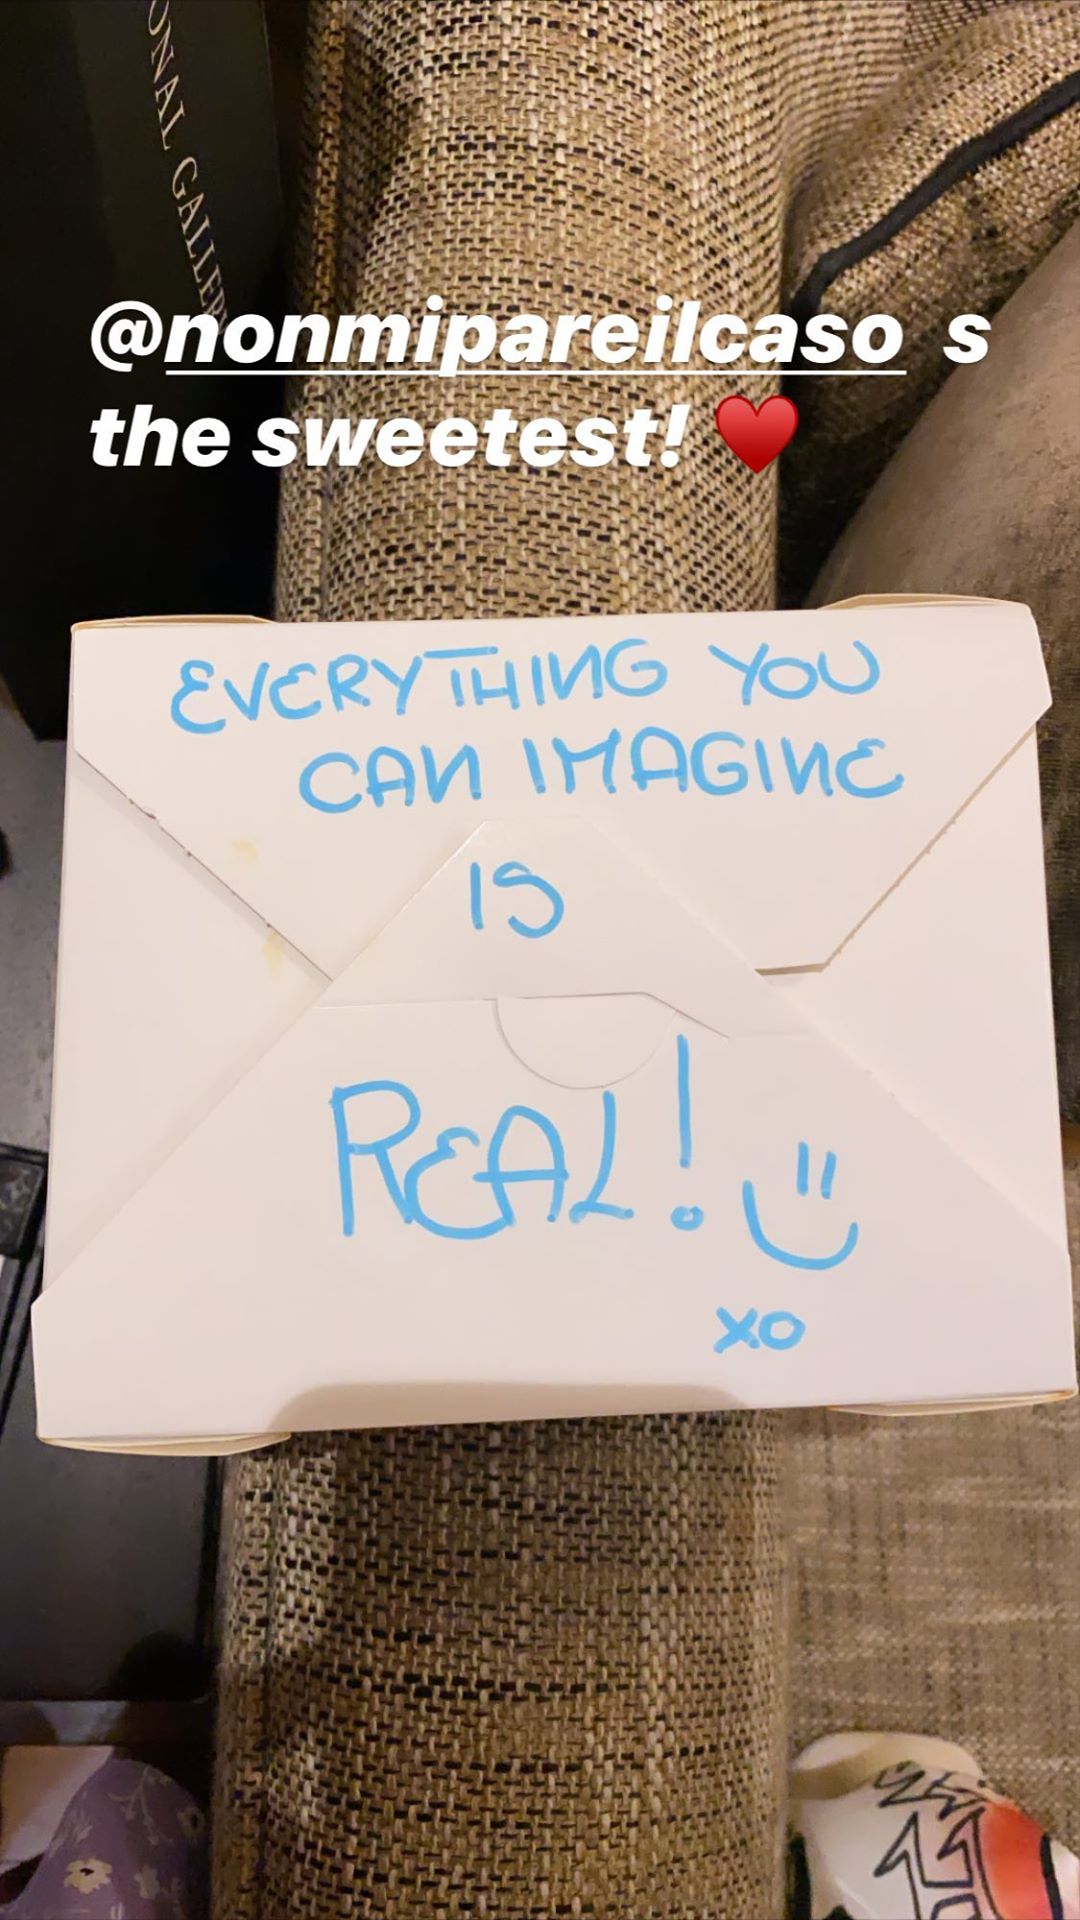 ONAL GALLER
@nonmipareilcaso s
the sweetest! ♥️
EVERYTHING YOU
CAN IMAGINE
IS
REAL! =)
XO